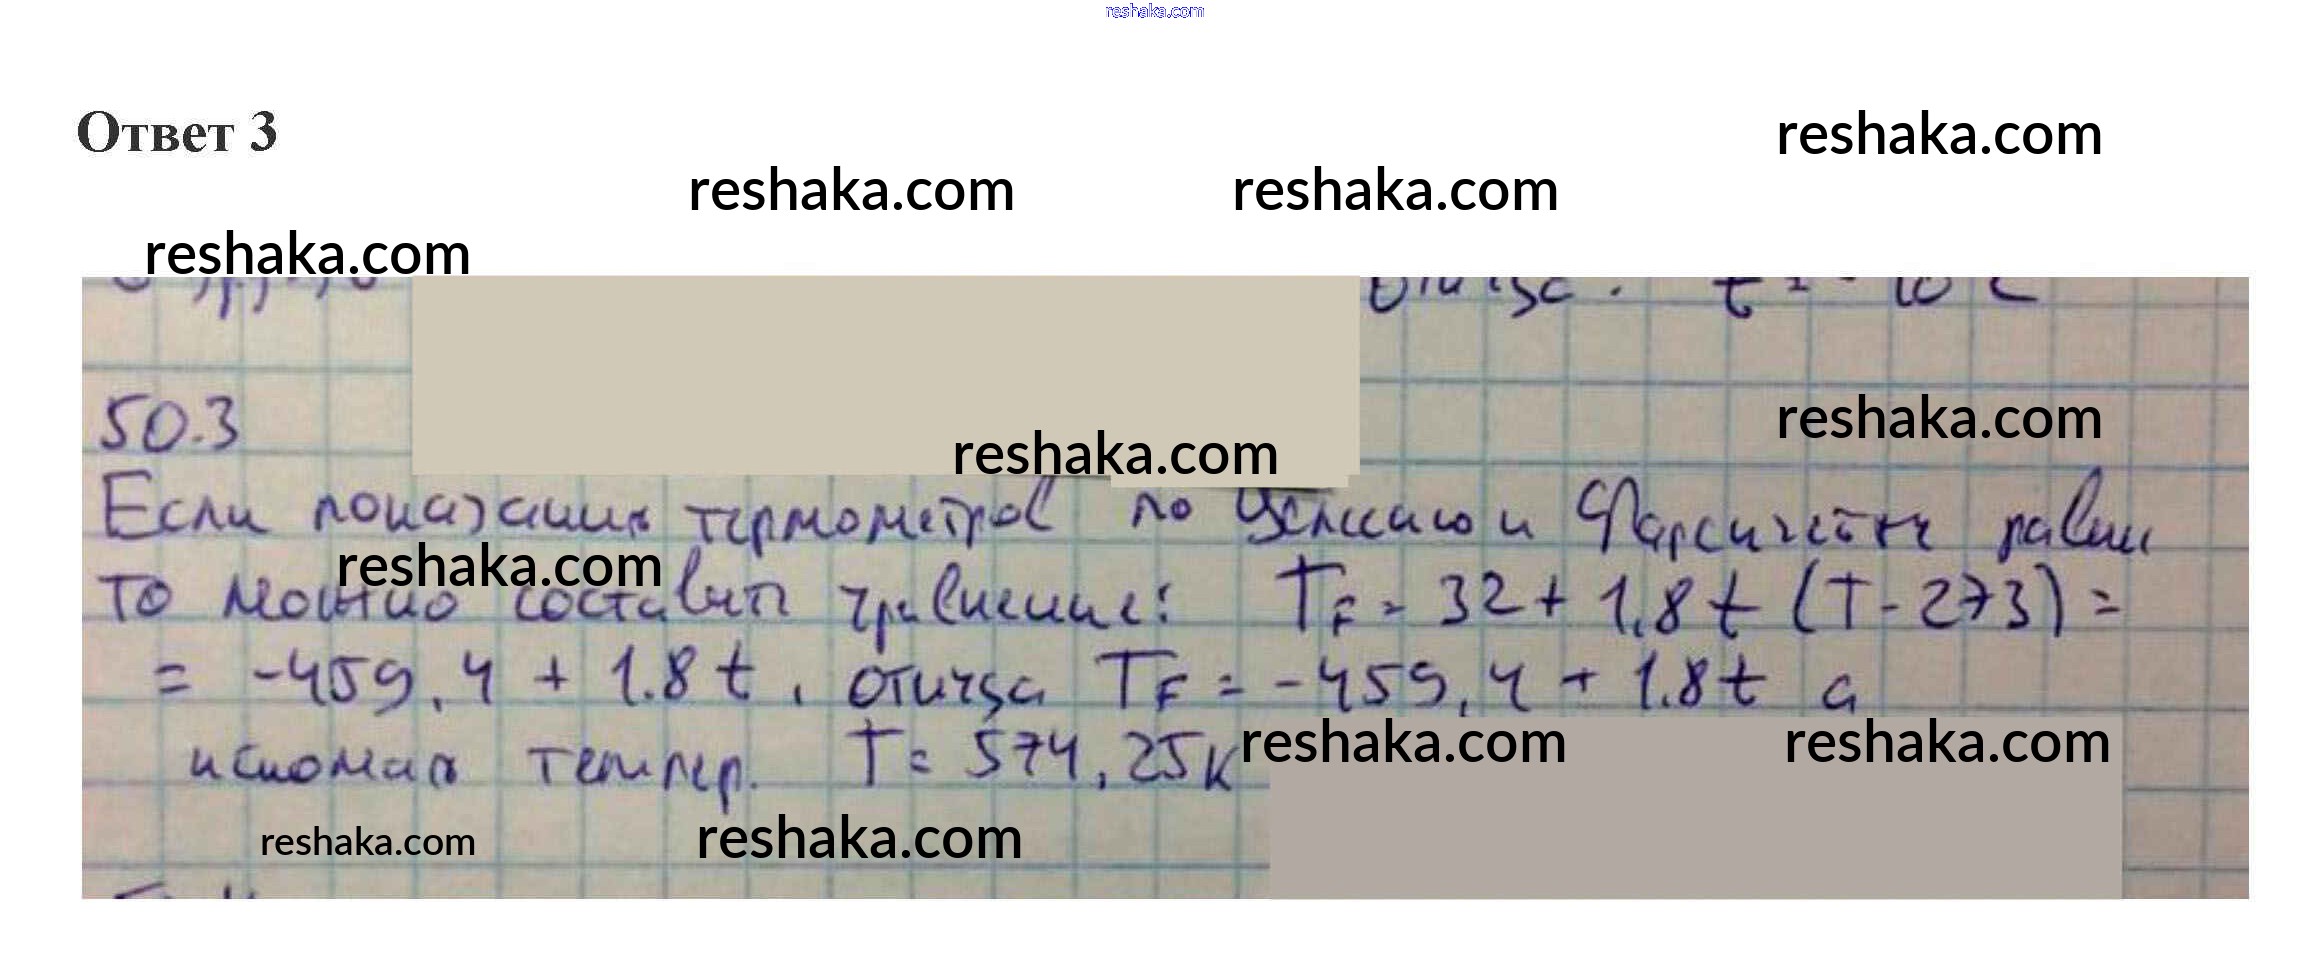 reshaka.com
Ответ 3
reshaka.com
reshaka.com
reshaka.com
reshaka.com
50.3
reshaka.com
reshaka.com
Если показания термометров по Цельсию и равны
reshaka.com
то можно составить уравнение: T_F = 32 + 1,8 t (T - 273) =
= -459,4 + 1.8 t , отсюда T_F = -459,4 + 1.8 t а
искомая темпер. T = 574,25К
reshaka.com
reshaka.com
reshaka.com
reshaka.com